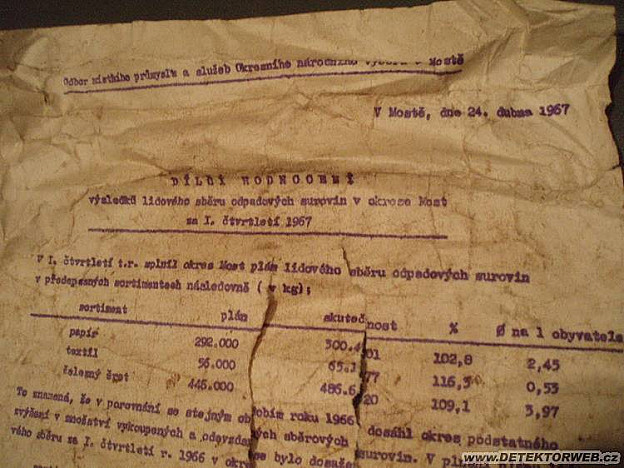 Odbor místního průmyslu a služeb Okresního národního výboru v Mostě
V Mostě, dne 24. dubna 1967
DÍLČÍ HODNOCENÍ
výsledků lidového sběru odpadových surovin v okrese Most
za I. čtvrtletí 1967
V I. čtvrtletí t.r. splnil okres Most plán lidového sběru odpadových surovin
v předepsaných sortimentech následovně ( v kg):
sortiment plán skutečnost % Ø na 1 obyvatele
papír 292.000 300.401 102,8 2,45
textil 56.000 65.177 116,3 0,53
železný šrot 446.000 486.620 109,1 3,97
To znamená, že v porovnání se stejným obdobím roku 1966 dosáhl okres podstatného
zvýšení v množství vykoupených a odevzdaných sběrových surovin. V plnění
vého sběru za I. čtvrtletí r. 1966 v okrese bylo dosaženo
WWW.DETEKTORWEB.CZ